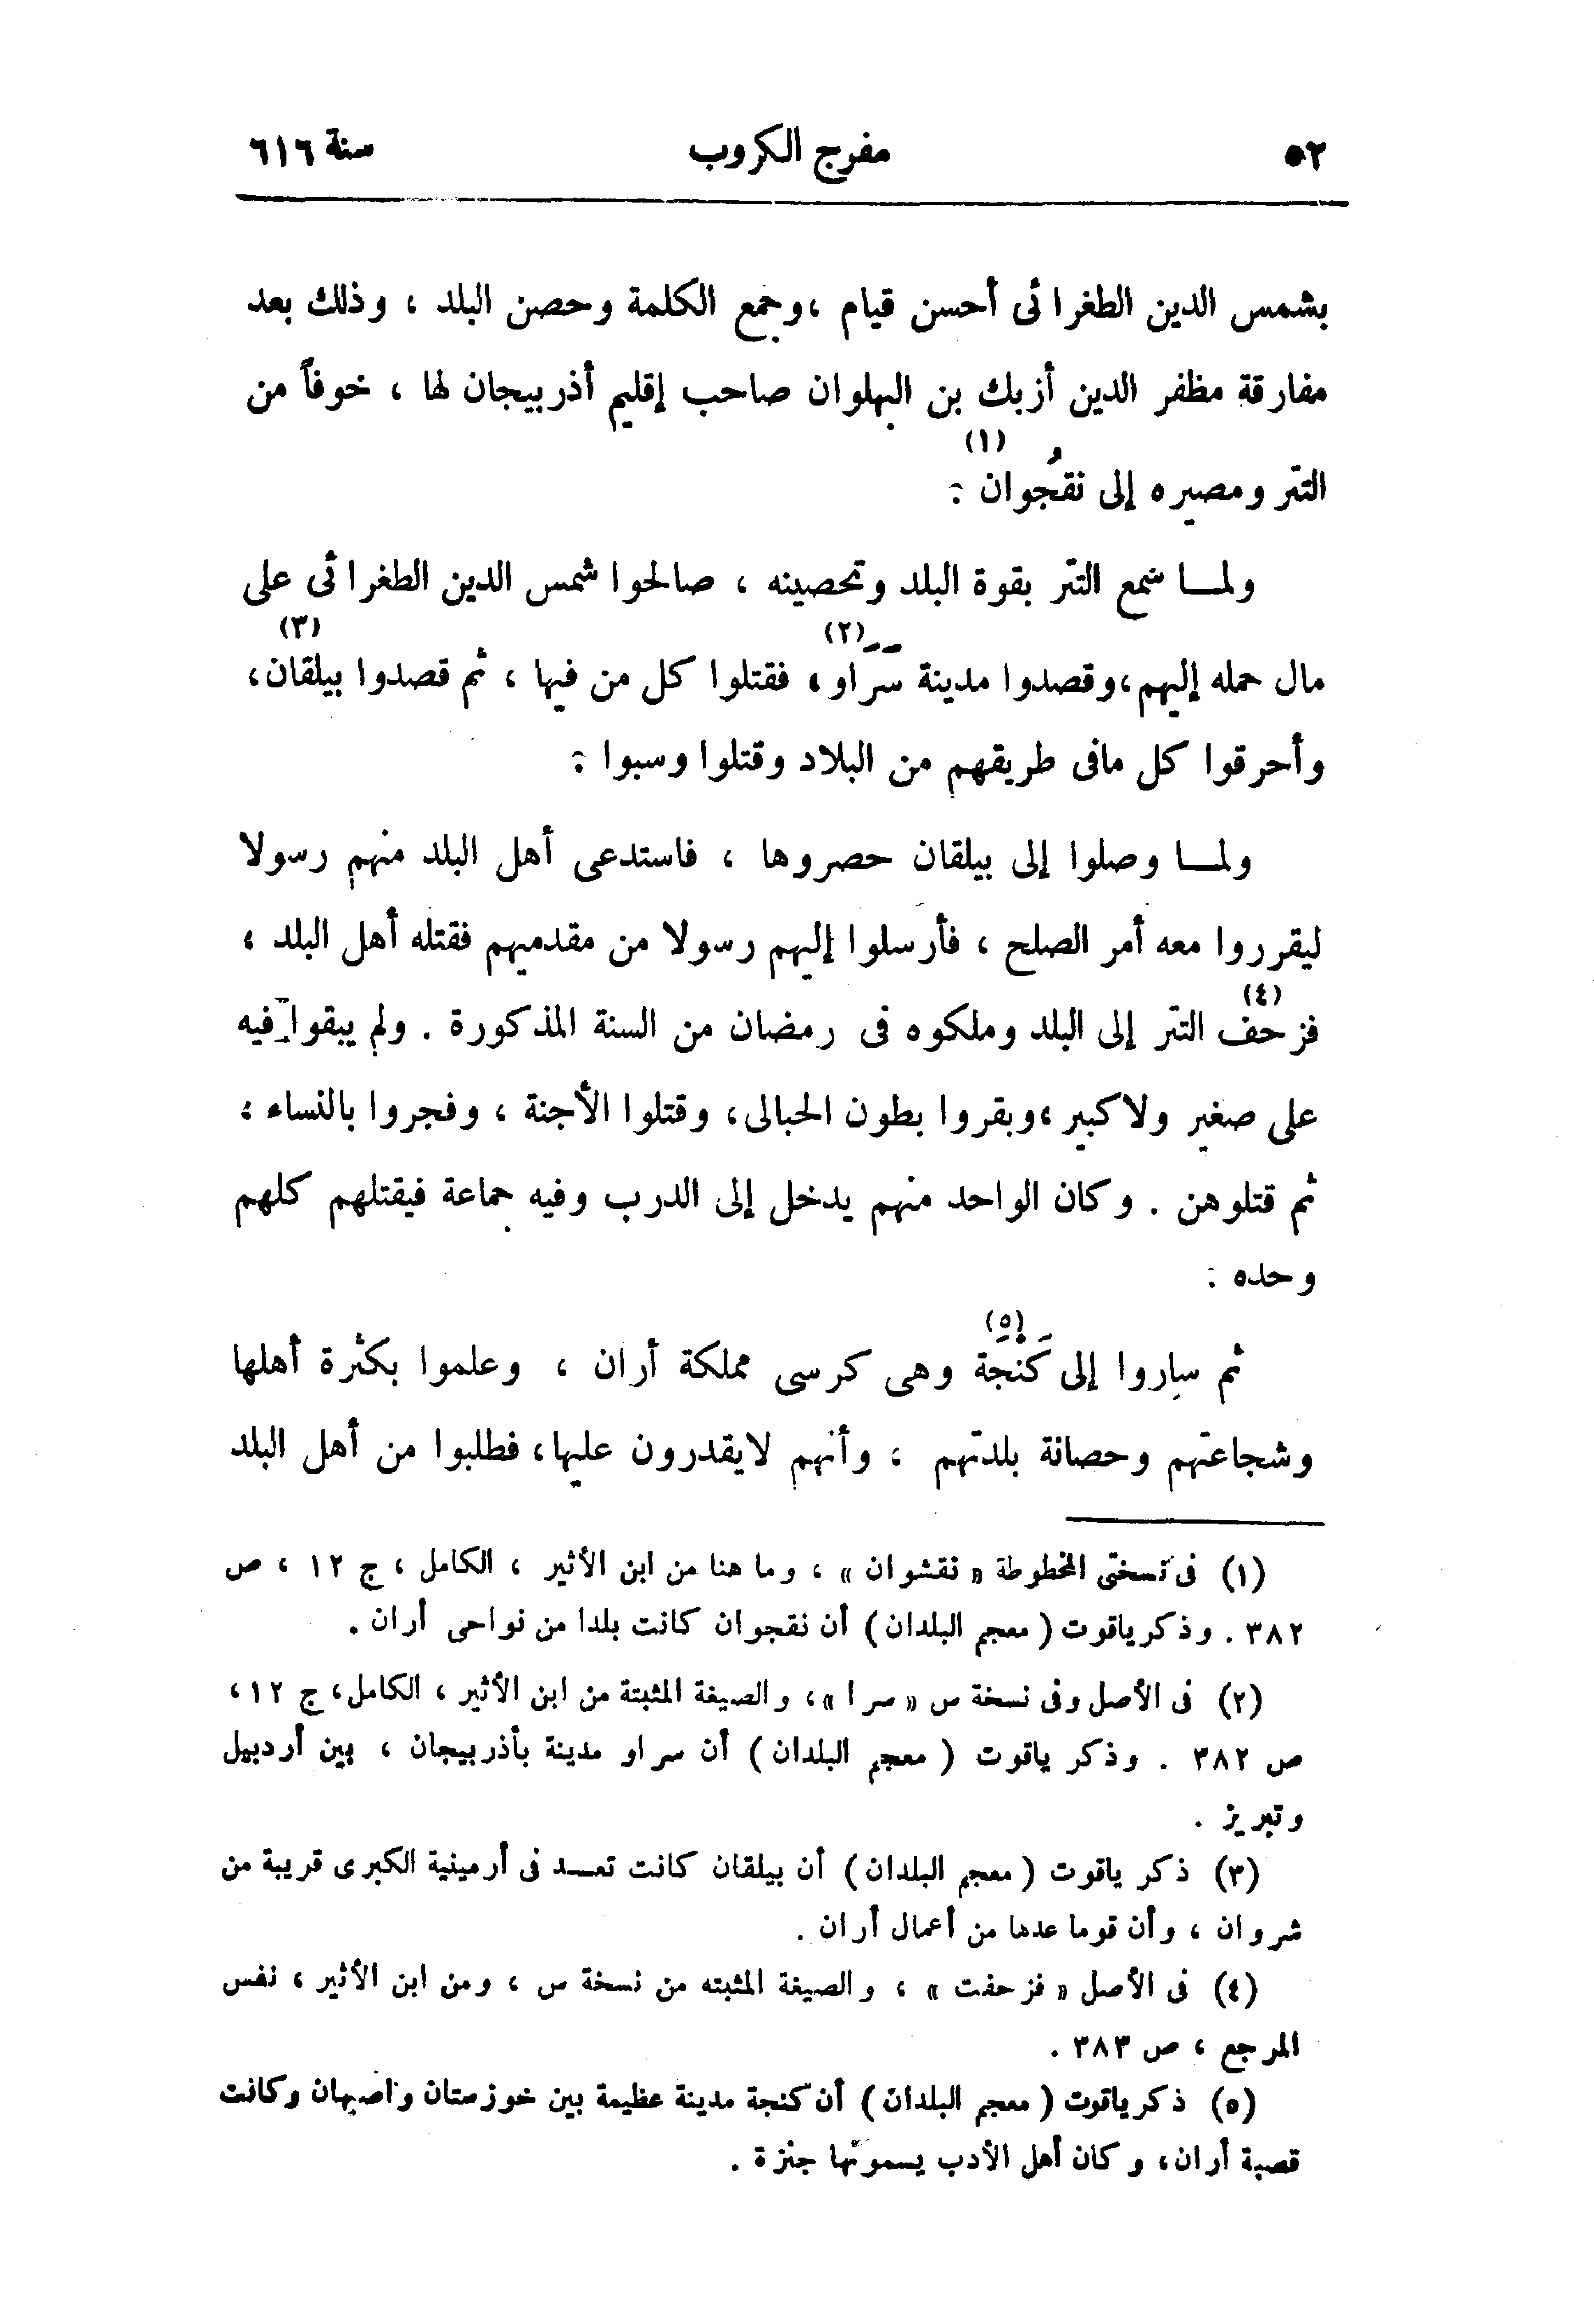 ٥٢ مفرج الكروب سنة ٦١٦
بشمس الدين الطغرائى أحسن قيام ، وجمع الكلمة وحصن البلد ، وذلك بعد
مفارقة مظفر الدين أزبك بن البهلوان صاحب إقليم أذربيجان لها ، خوفاً من
التتر ومصيره إلى نقجُوان (١) .
ولمـــا سمع التتر بقوة البلد وتحصينه ، صالحوا شمس الدين الطغرائى على
مال حمله إليهم ، وقصدوا مدينة سَرَاو (٢) ، فقتلوا كل من فيها ، ثم قصدوا بيلقان (٣) ،
وأحرقوا كل مافى طريقهم من البلاد وقتلوا وسبوا .
ولمـــا وصلوا إلى بيلقان حصروها ، فاستدعى أهل البلد منهم رسولا
ليقرروا معه أمر الصلح ، فأرسلوا إليهم رسولا من مقدميهم فقتله أهل البلد ،
فزحف (٤) التتر إلى البلد وملكوه فى رمضان من السنة المذكورة . ولم يبقوا فيه
على صغير ولا كبير ، وبقروا بطون الحبالى ، وقتلوا الأجنة ، وفجروا بالنساء ،
ثم قتلوهن . وكان الواحد منهم يدخل إلى الدرب وفيه جماعة فيقتلهم كلهم
وحده .
ثم ساروا إلى كَنْجَة (٥) وهى كرسى مملكة أران ، وعلموا بكثرة أهلها
وشجاعتهم وحصانة بلدتهم ، وأنهم لايقدرون عليها ، فطلبوا من أهل البلد
(١) فى نسختى المخطوطة « نقشوان » ، وما هنا من ابن الأثير ، الكامل ، ج ١٢ ، ص
٣٨٢ . وذكر ياقوت ( معجم البلدان ) أن نقجوان كانت بلدا من نواحى أران .
(٢) فى الأصل وفى نسخة س « سرا » ، والصيغة المثبتة من ابن الأثير ، الكامل ، ج ١٢ ،
ص ٣٨٢ . وذكر ياقوت ( معجم البلدان ) أن سراو مدينة بأذربيجان ، بين أردبيل
وتبريز .
(٣) ذكر ياقوت ( معجم البلدان ) أن بيلقان كانت تعـــد فى أرمينية الكبرى قريبة من
شروان ، وأن قوما عدها من أعمال أران .
(٤) فى الأصل « فزحفت » ، والصيغة المثبته من نسخة س ، ومن ابن الأثير ، نفس
المرجع ، ص ٣٨٣ .
(٥) ذكر ياقوت ( معجم البلدان ) أن كنجة مدينة عظيمة بين خوزستان واصبهان وكانت
قصبة أران ، وكان أهل الأدب يسمونها جنزة .